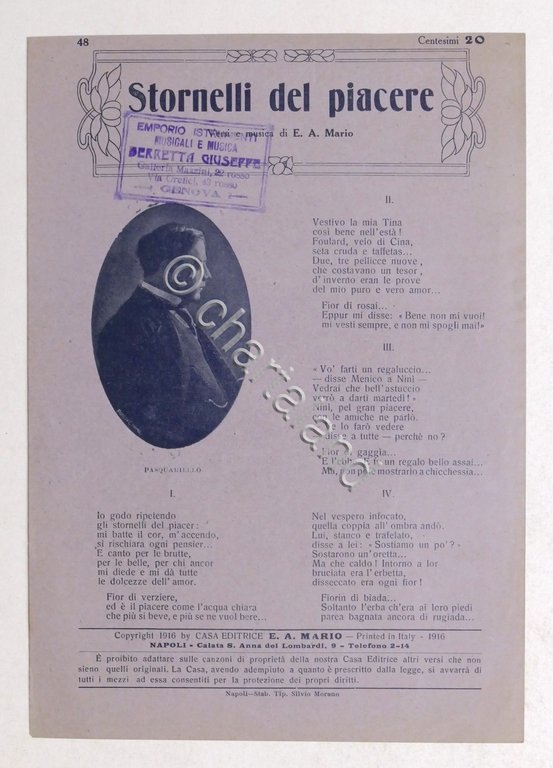 48
Centesimi 20
Stornelli del piacere
Versi e musica di E. A. Mario
EMPORIO ISTRUMENTI
MUSICALI E MUSICA
BERRETTA GIUSEPPE
Galleria Mazzini, 22 rosso
Via Orefici, 43 rosso
— GENOVA —
© chartaland
PASQUARIELLO
I.
Io godo ripetendo
gli stornelli del piacer:
mi batte il cor, m'accendo,
si rischiara ogni pensier...
E canto per le brutte,
per le belle, per chi ancor
mi diede e mi dà tutte
le dolcezze dell'amor.
Fior di verziere,
ed è il piacere come l'acqua chiara
che più si beve, e più se ne vuol bere...
II.
Vestivo la mia Tina
così bene nell'està!
Foulard, velo di Cina,
seta cruda e taffetas...
Due, tre pellicce nuove,
che costavano un tesor,
d'inverno eran le prove
del mio puro e vero amor...
Fior di rosai...
Eppur mi disse: « Bene non mi vuoi!
mi vesti sempre, e non mi spogli mai!»
III.
« Vo' farti un regaluccio...
— disse Menico a Ninì —
Vedrai che bell'astuccio
verrò a darti martedì! »
Ninì, pel gran piacere,
con le amiche ne parlò.
e lo farò vedere
disse a tutte — perchè no?
Fior di gaggìa...
E l'ebbe. E fu un regalo bello assai...
Ma, non potè mostrarlo a chicchessia...
IV.
Nel vespero infocato,
quella coppia all'ombra andò.
Lui, stanco e trafelato,
disse a lei: « Sostiamo un po'? »
Sostarono un'oretta...
Ma che caldo! Intorno a lor
bruciata era l'erbetta,
disseccato era ogni fior!
Fiorin di biada...
Soltanto l'erba ch'era ai loro piedi
parea bagnata ancora di rugiada...
Copyright 1916 by CASA EDITRICE E. A. MARIO — Printed in Italy - 1916
NAPOLI - Calata S. Anna dei Lombardi, 9 - Telefono 2-14
È proibito adattare sulle canzoni di proprietà della nostra Casa Editrice altri versi che non
sieno quelli originali. La Casa, avendo adempiuto a quanto è prescritto dalla legge, si avvarrà di
tutti i mezzi ad essa consentiti per la protezione dei propri diritti.
Napoli—Stab. Tip. Silvio Morano